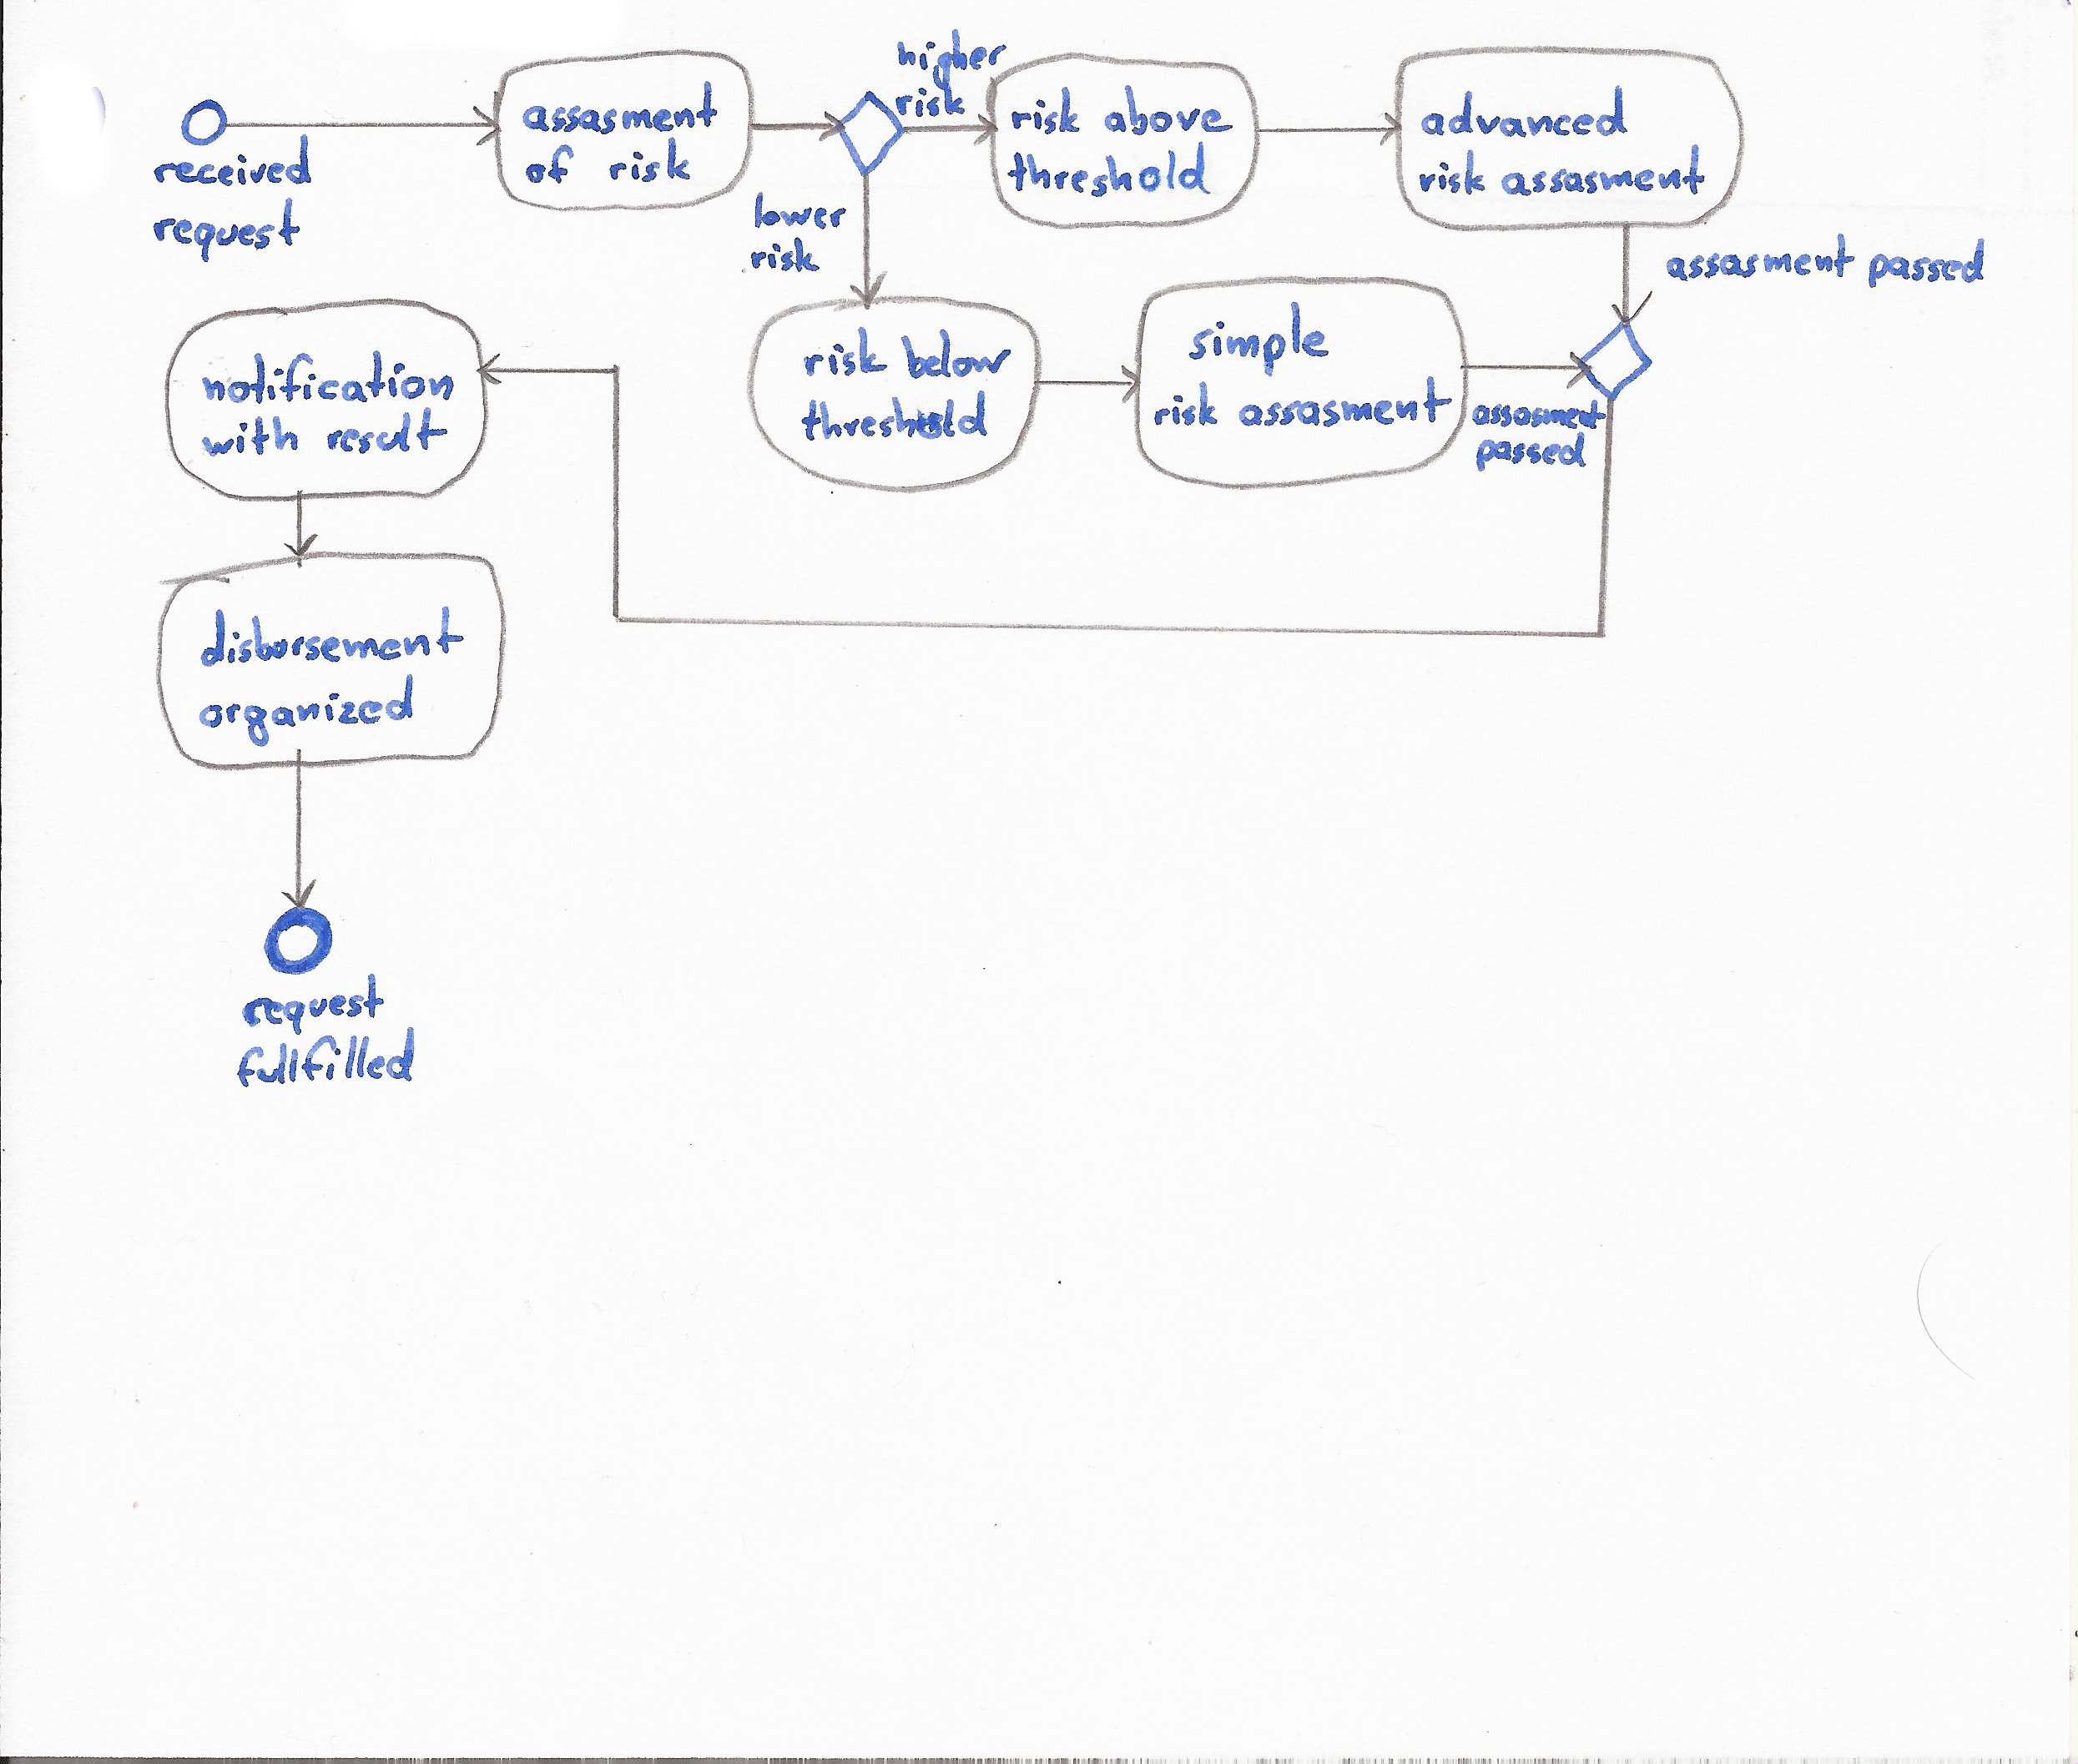 received
request
assasment
of risk
higher
risk
risk above
threshold
advanced
risk assasment
lower
risk
assasment passed
risk below
threshold
simple
risk assasment
assasment
passed
notification
with result
disbursement
organized
request
fullfilled